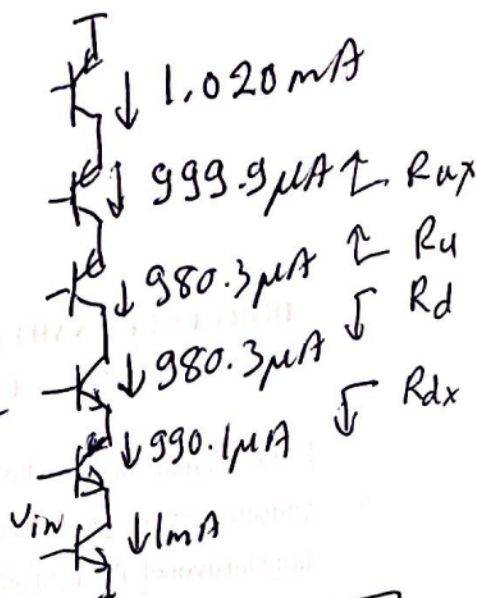 1.020mA
999.9μA Rux
980.3μA Ru
Rd
980.3μA
Rdx
990.1μA
Vin 1mA